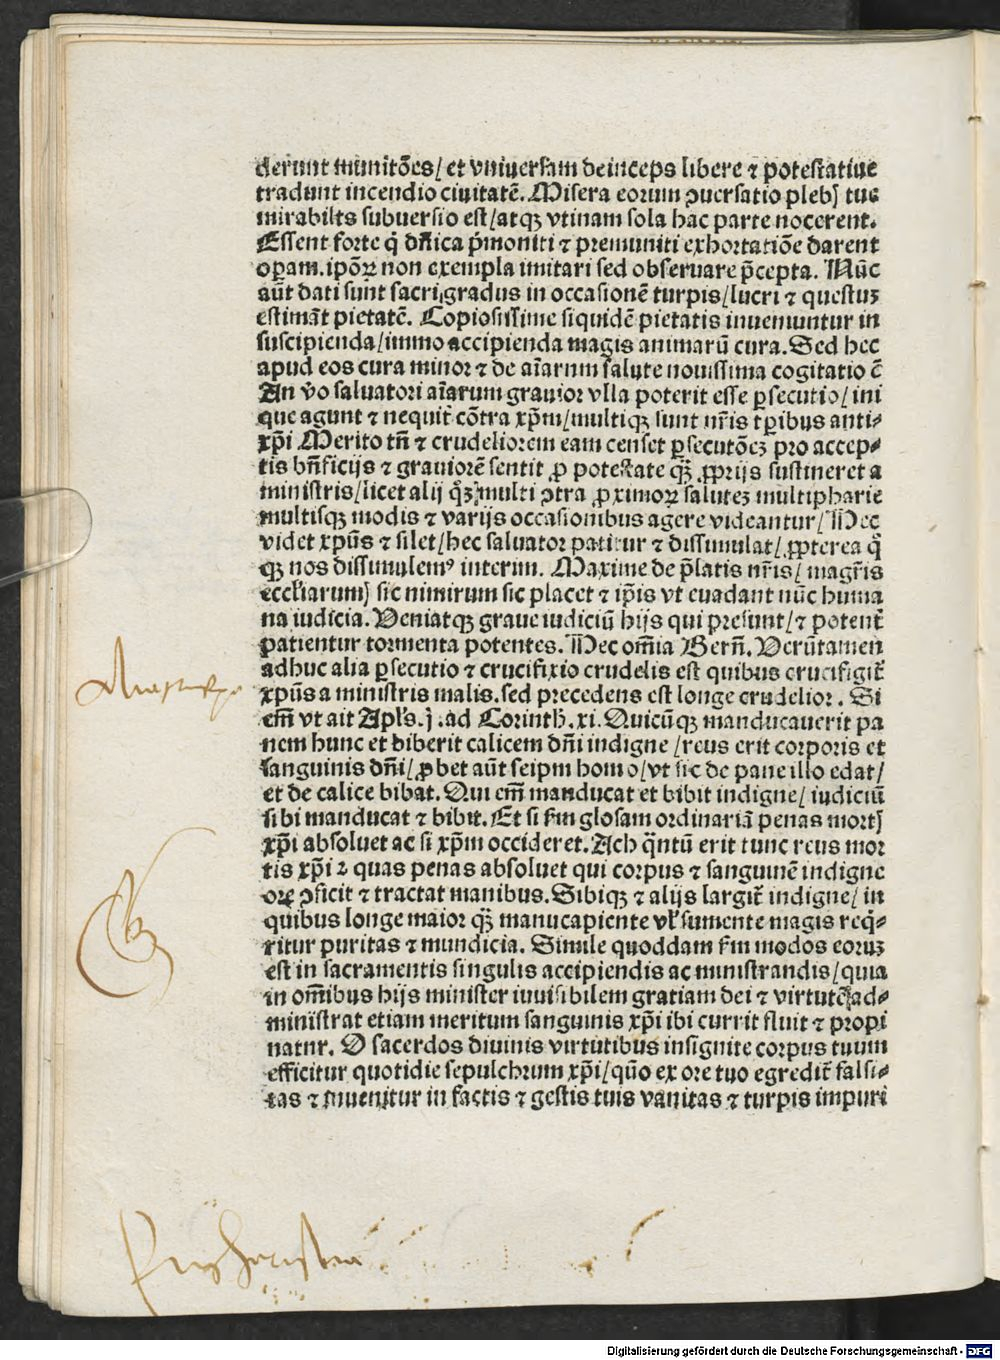 derunt munitões/ et vniuersam deinceps libere ⁊ potestatiue
tradunt incendio ciuitatē. Misera eorum ꝯuersatio plebꝭ tue
mirabilis subuersio est/atqꝫ vtinam sola hac parte nocerent.
Essent forte q̇ dñica p̃moniti ⁊ premuniti exhortatiōe darent
operam. ipõꝝ non exempla imitari sed obseruare p̃cepta. Nūc
aūt dati sunt sacri gradus in occasionē turpis/ lucri ⁊ questuꝫ
estimāt pietatē. Copiosissime siquidē pietatis inueniuntur in
suscipienda/immo accipienda magis animarū cura. Sed hec
apud eos cura minor ⁊ de aīarum salute nouissima cogitatio ē
An v̊o saluatori aīarum grauior vlla poterit esse ꝑsecutio/ ini
que agunt ⁊ nequit̃ cōtra xp̄m/multiqꝫ sunt nr̄is tꝑibus anti⸗
xp̄i Merito tñ ⁊ crudeliorem eam censet ꝑsecutōeꝫ pro accep⸗
tis bñficijs ⁊ grauiorē sentit ꝓ potestate qꝫ̃ ꝓprijs sustineret a
ministris/ licet alij q̊ꝫ multi ꝯtra ꝓximoꝝ saluteꝫ multipharie
multisqꝫ modis ⁊ varijs occasionibus agere videantur/ Hec
videt xp̄us ⁊ silet/ hec saluator patitur ⁊ dissimulat/ ꝓpterea q̊
qꝫ nos dissimulemꝰ interim. Maxime de p̄latis nr̄is/ magr̄is
eccl̄iarumꝭ sic nimirum sic placet ⁊ ip̄is vt euadant nūc huma
na iudicia. Veniatqꝫ graue iudiciū hijs qui presunt/ ⁊ potent̃
patientur tormenta potentes. Hec om̄ia Berñ. Verūtamen
adhuc alia ꝑsecutio ⁊ crucifixio crudelis est quibus crucifigit̃
xp̄us a ministris malis. sed precedens est longe crudelior. Si
em̄ vt ait Apl̄s. j. ad Corinth. xi. Quicūqꝫ manducauerit pa
nem hunc et biberit calicem dñi indigne/ reus erit corporis et
sanguinis dñi/ ꝓbet aūt seipm homo/ vt sic de pane illo edat/
et de calice bibat. Qui em̄ manducat et bibit indigne/ iudiciū
sibi manducat ⁊ bibit. Et si ẜm glosam ordinariā penas mortꝭ
xp̄i absoluet ac si xp̄m occideret. Ach q̃ntū erit tunc reus mor
tis xp̄i ⁊ quas penas absoluet qui corpus ⁊ sanguinē indigne
ore ꝯficit ⁊ tractat manibus. Sibiqꝫ ⁊ alijs largit̃ indigne/ in
quibus longe maior qꝫ̃ manucapiente vl̄ sumente magis req̇⸗
ritur puritas ⁊ mundicia. Simile quoddam ẜm modos eoruꝫ
est in sacramentis singulis accipiendis ac ministrandis/ quia
in om̄ibus hijs minister inuisibilem gratiam dei ⁊ virtutē ad⸗
ministrat etiam meritum sanguinis xp̄i ibi currit fluit ⁊ propi
natur. O sacerdos diuinis virtutibus insignite corpus tuum
efficitur quotidie sepulchrum xp̄i/ quō ex ore tuo egredit̃ falsi⸗
tas ⁊ inuenitur in factis ⁊ gestis tuis vanitas ⁊ turpis impuri
Digitalisierung gefördert durch die Deutsche Forschungsgemeinschaft - DFG